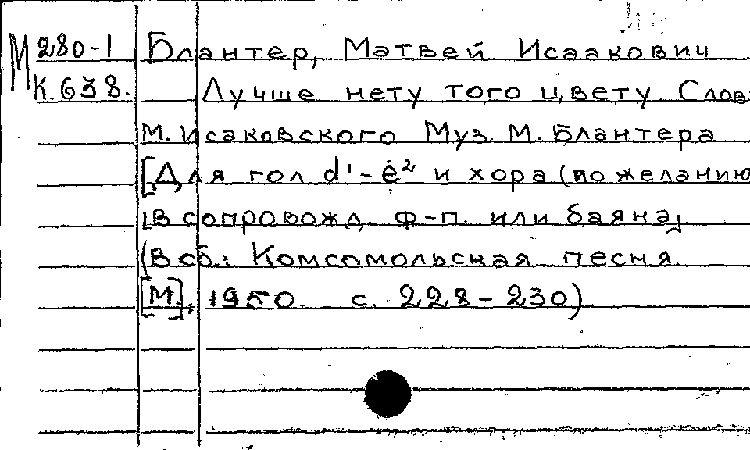 М 280-1 Блантер, Матвей Исаакович
К.638. Лучше нету того цвету Слова
М. Исаковского Муз. М. Блантера
[Для гол d¹-e² и хора (по желанию
в сопровожд. ф-п. или баяна]
(В сб.: Комсомольская песня.
[М]., 1950 с. 228-230)